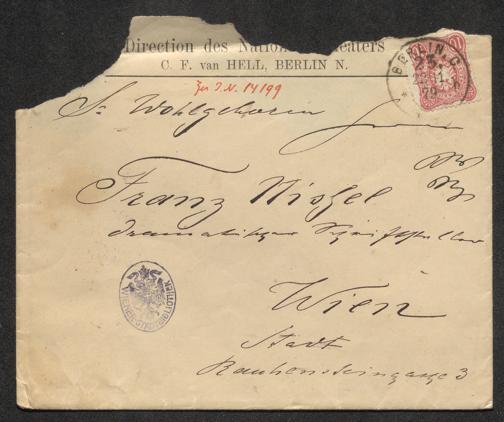 Direction des National-Theaters
C. F. van HELL, BERLIN N.
Zu I.N. 14199
BERLIN, C.
25.
79
Sr Wohlgeboren
Franz Nissel
dramatischer Schriftsteller
Wien
Stadt
Rauhensteingasse 3
WIENER STADTBIBLIOTHEK